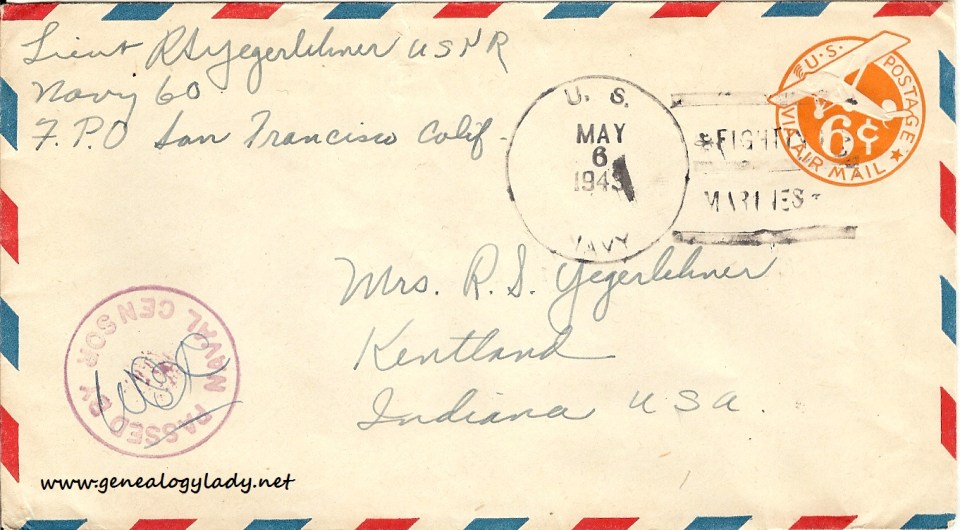 Lieut R S Yegerlehner USNR
Navy 60
F.P.O San Francisco Calif -
U. S.
MAY
6
1943
NAVY
MARINES
U.S. POSTAGE
6¢
VIA AIR MAIL
Mrs. R. S. Yegerlehner
Kentland
Indiana USA.
PASSED BY NAVAL CENSOR
www.genealogylady.net